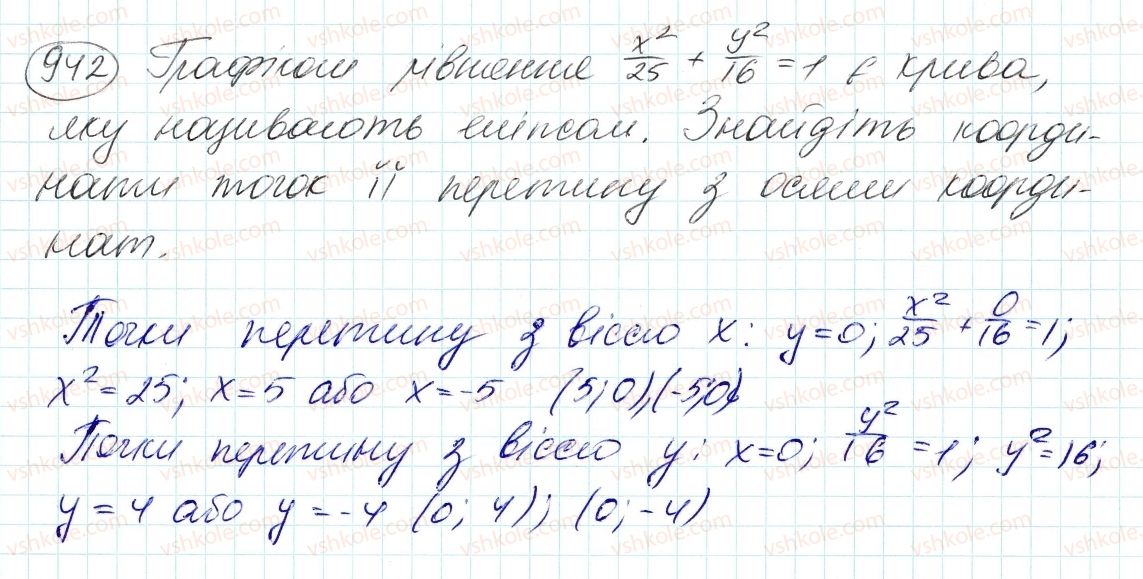 942 Графіком рівняння x²/25 + y²/16 = 1 є крива,
яку називають еліпсом. Знайдіть коорди-
нати точок її перетину з осями коорди-
нат.
Точки перетину з віссю x: y=0; x²/25 + 0/16 = 1;
x² = 25; x = 5 або x = -5 (5; 0), (-5; 0)
Точки перетину з віссю y: x=0; y²/16 = 1; y² = 16;
y = 4 або y = -4 (0; 4); (0; -4)